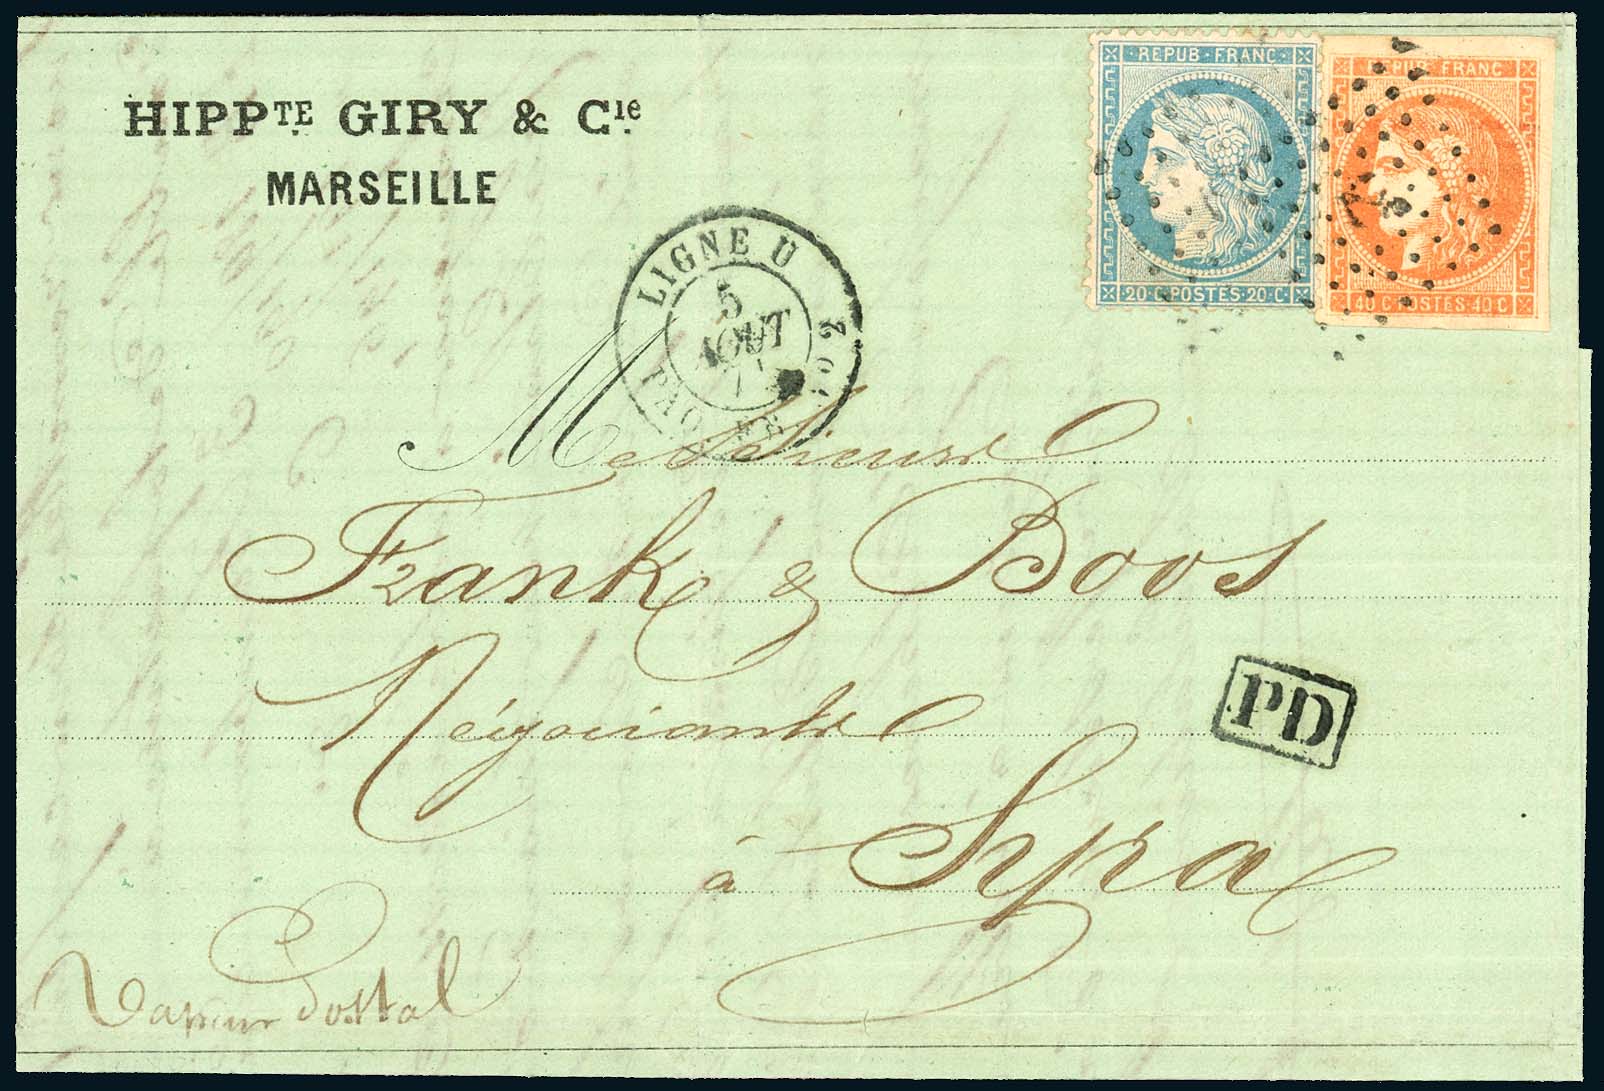 HIPPTE GIRY & Cie
MARSEILLE
REPUB·FRANC
20·C·POSTES·20·C
REPUB·FRANC
40·C·POSTES·40·C
LIGNE U
5
AOUT
PAQ
Messieurs
Frank & Boos
Négociants
PD
à Syra
Vapeur Postal